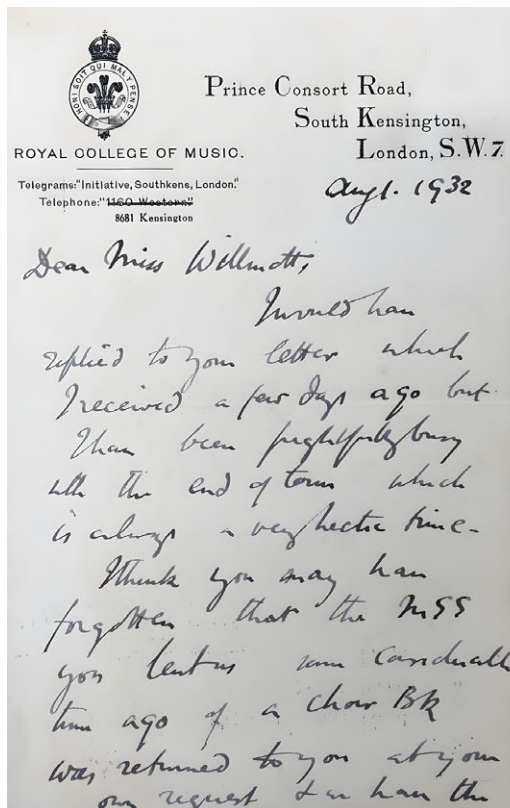 HONI SOIT QUI MAL Y PENSE
ROYAL COLLEGE OF MUSIC.
Telegrams: "Initiative, Southkens, London."
Telephone: "1160 Western"
8681 Kensington
Prince Consort Road,
South Kensington,
London, S.W.7.
Aug 1. 1932
Dear Miss Willmott,
I would have
replied to your letter which
I received a few days ago but
I have been frightfully busy
with the end of term which
is always a very hectic time -
I think you may have
forgotten that the MSS
you lent us some considerable
time ago of a choir Bk
was returned to you at your
own request & we have the